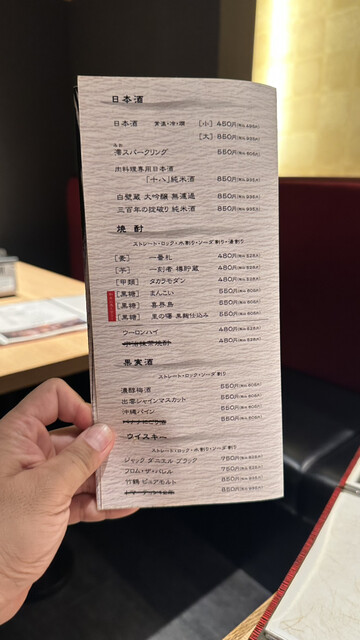 日本酒
日本酒 常温・冷・燗 [小] 450円(税込 495円)
[大] 850円(税込 935円)
澪スパークリング 550円(税込 605円)
肉料理専用日本酒
「十八」純米酒 850円(税込 935円)
白壁蔵 大吟醸 無濾過 850円(税込 935円)
三百年の掟破り 純米酒 850円(税込 935円)
焼酎
ストレート・ロック・水割り・ソーダ割り・湯割り
[麦] 一番札 480円(税込 528円)
[芋] 一刻者 樽貯蔵 480円(税込 528円)
[甲類] タカラモダン 480円(税込 528円)
[黒糖] まんこい 550円(税込 605円)
[黒糖] 喜界島 550円(税込 605円)
[黒糖] 里の曙 黒麹仕込み 550円(税込 605円)
ウーロンハイ 480円(税込 528円)
480円(税込 528円)
果実酒
ストレート・ロック・ソーダ割り
濃醇梅酒 550円(税込 605円)
出雲シャインマスカット 550円(税込 605円)
沖縄パイン 550円(税込 605円)
550円(税込 605円)
ウイスキー
ストレート・ロック・水割り・ソーダ割り
ジャック ダニエル ブラック 750円(税込 825円)
フロム・ザ・バレル 750円(税込 825円)
竹鶴 ピュアモルト 850円(税込 935円)
850円(税込 935円)